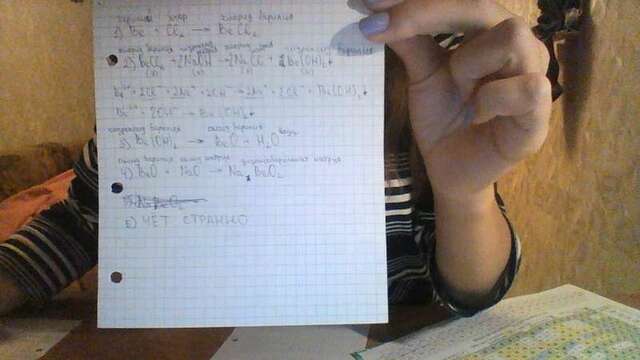 бериллий хлор хлорид бериллия
1) Be + Cl₂ → BeCl₂
хлорид бериллия гидроксид бериллия
2) BeCl₂ + 2NaOH → 2NaCl + Be(OH)₂↓
Be²⁺ + 2Cl⁻ + 2Na⁺ + 2OH⁻ → 2Na⁺ + 2Cl⁻ + Be(OH)₂↓
Be²⁺ + 2OH⁻ → Be(OH)₂↓
гидроксид бериллия оксид бериллия вода
3) Be(OH)₂ → BeO + H₂O
оксид бериллия оксид натрия
4) BeO + NaO → Na₂BeO₂
5) ЧЕТ СТРАННО